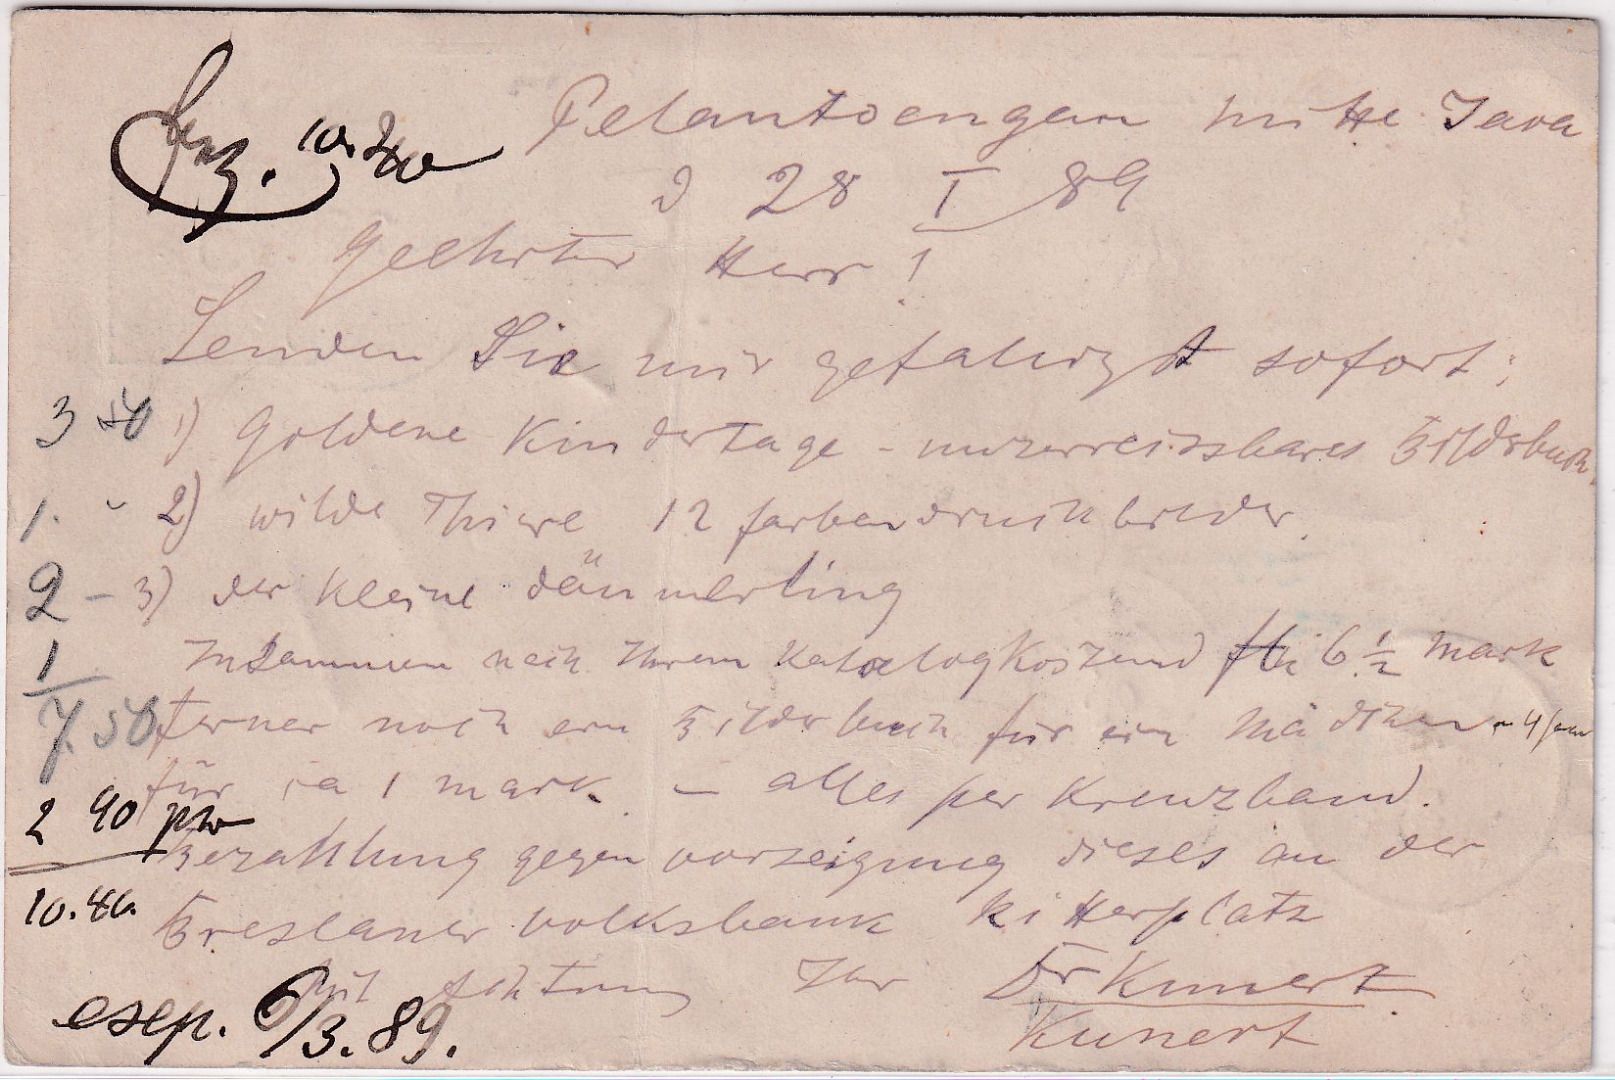 10.40
Pelantoengan mitte Java
d 28 I 89
Geehrter Herr!
Senden Sie mir gefälligst sofort:
3 50 1) Goldene Kindertage - unzerreissbares Bilderbuch
1. - 2) wilde Thiere 12 farbendruckbilder.
2 - 3) der kleine däumerling
1 Zusammen nach Ihrem Katalog kostend 6 1/2 Mark
7.50 ferner noch ein Bilderbuch für ein Mädchen - 4 Jahr
für ca 1 mark. - alles per Kreuzband.
2 90 pto
Bezahlung gegen vorzeigung dieses an der
10.40. Breslauer volksbank Ritterplatz
Mit Achtung Ihr Dr Kunert
exp. 6/3.89. Kunert